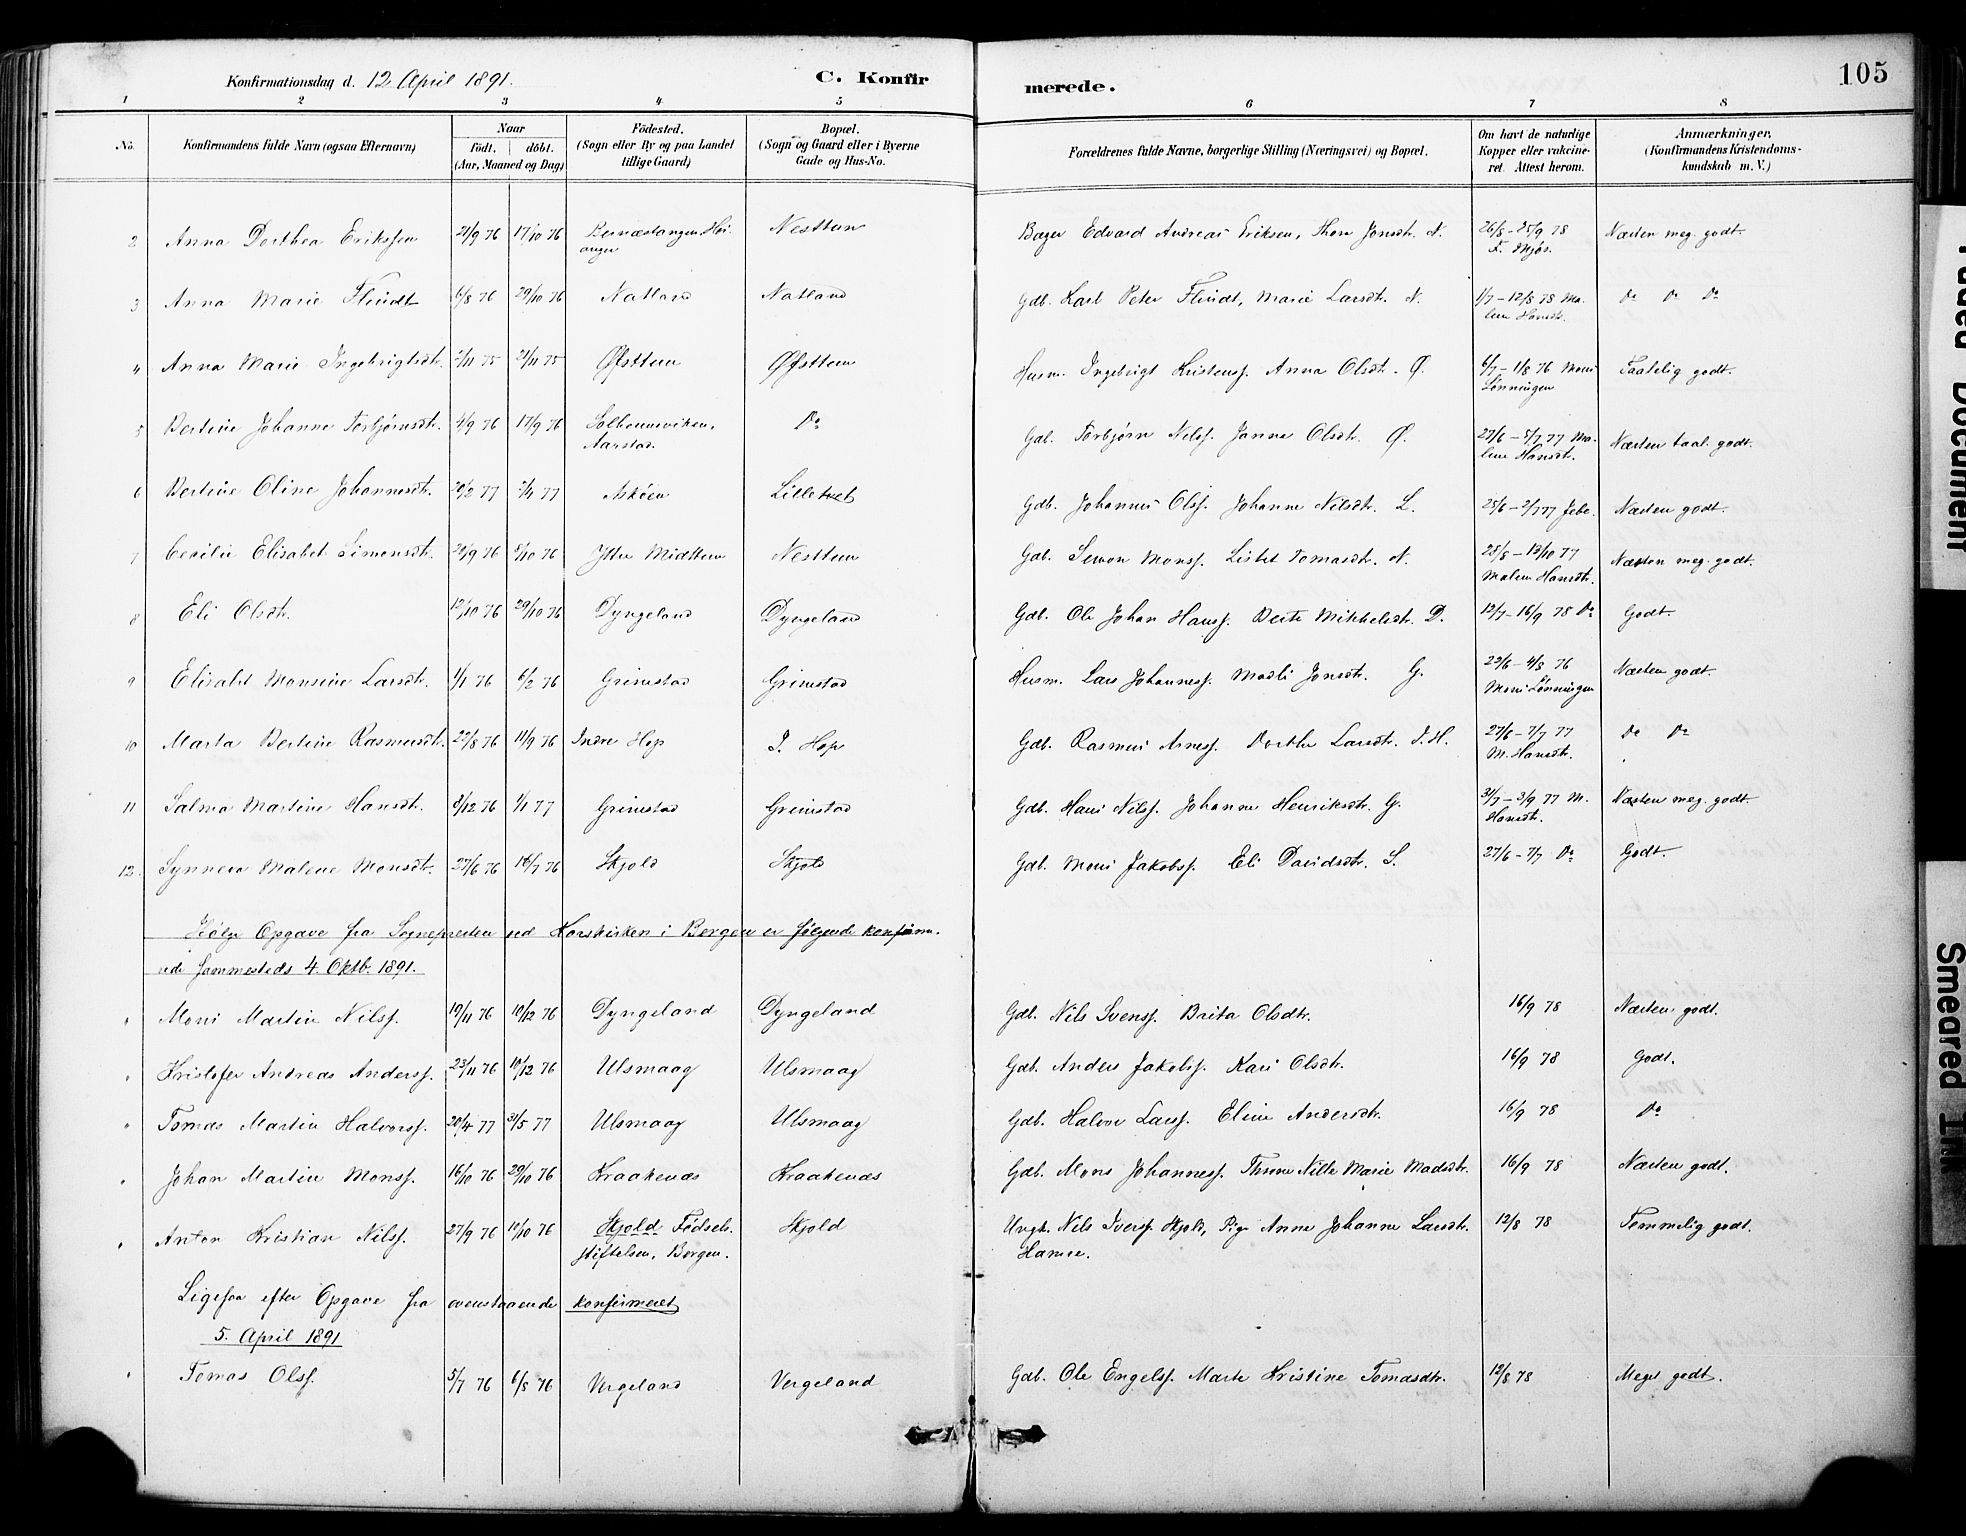 105
Konfirmationsdag d. 12 April 1891.
C. Konfirmerede.
1 2 3 4 5 6 7 8
No.
Konfirmandens fulde Navn (ogsaa Efternavn)
Naar
født. døbt.
(Aar, Maaned og Dag)
Fødested.
(Sogn eller By og paa Landet
tillige Gaard)
Bopæl.
(Sogn og Gaard eller i Byerne
Gade og Hus-No.
Forældrenes fulde Navne, borgerlige Stilling (Næringsvei) og Bopæl.
Om havt de naturlige
Kopper eller vakcine-
ret. Attest herom.
Anmærkninger,
(Konfirmandens Kristendoms-
kundskab m. V.)
2 Anna Dorthea Eriksen 21/9 76 17/10 76 Nesttun Bager Edvard Andreas Eriksen, Thore Jonsdt. N. 26/8 - 25/9 78 Næsten meg. godt.
3 Anna Marie Flindt 6/8 76 29/10 76 Natland Natland Gdb. Karl Peter Flindt, Marie Larsdt. N. 1/7 - 12/8 78 Ma-
lene Hansdt. Do Do Do
4 Anna Marie Ingebrigtsdtr. 2/11 75 21/11 75 Øfsttun Øfsttun Husm. Ingebrigt Kristensf. Anna Olsdt. Ø. 6/7 - 11/8 76 Mons
Lønningen Taalelig godt.
5 Bertine Johanne Torbjørnsdt. 4/9 76 17/9 76 Solheimsviken,
Aarstad. Do Gdb. Torbjørn Nilsf. Janna Olsdt. Ø. 27/6 - 5/7 77 Ma-
lene Hansdt. Næsten taal. godt.
6 Bertine Oline Johannesdt. 20/2 77 2/4 77 Askøen Lilletvet Gdb. Johannes Olsf. Johanne Nilsdt. L. 25/6 - 2/7 77 Jebe. Næsten godt.
7 Cecilie Elisabet Simonsdt. 20/9 76 8/10 76 Ytre Midttun Nesttun Gdb. Simon Monsf. Lisbet Tomasdt. N. 28/8 - 13/10 77
Malene Hansdt. Næsten meg. godt.
8 Eli Olsdt. 12/10 76 29/10 76 Dyngeland Dyngeland Gdb. Ole Johan Hansf. Berte Mikkelsdt. D. 12/7 - 16/9 78 Do Godt.
9 Elisabet Monsine Larsdt. 1/1 76 6/2 76 Grimstad Grimstad Husm. Lars Johannesf. Madli Jonsdt. G. 29/6 - 4/8 76
Mons Lønningen Næsten godt.
10 Marta Bertine Rasmusdt. 22/8 76 11/9 76 Indre Hop I. Hop Gdb. Rasmus Arnesf. Dorthe Larsdt. I. H. 27/6 - 7/7 77
M. Hansdt. Do Do
11 Salma Martine Hansdt. 8/12 76 1/1 77 Grimstad Grimstad Gdb. Hans Nilsf. Johanne Henriksdt. G. 31/7 - 3/9 77 M.
Hansdt. Næsten meg. godt.
12. Synneva Malene Monsdt. 27/6 76 16/7 76 Skjold Skjold Gdb. Mons Jakobsf. Eli Davidsdt. S. 27/6 - 7/7 Do Godt.
Ifølge Opgave fra Sognepresten ved Korskirken i Bergen er følgende konfirme-
rede sammesteds 4. Oktb. 1891.
" Mons Martin Nilsf. 19/11 76 10/12 76 Dyngeland Dyngeland Gdb. Nils Svensf. Brita Olsdtr. 16/9 78 Næsten godt.
" Kristofer Andreas Andersf. 23/11 76 10/12 76 Ulsmaag Ulsmaag Gdb. Anders Jakobsf. Kari Olsdtr. 16/9 78 Godt.
" Tomas Martin Halvorsf. 20/4 77 31/5 77 Ulsmaag Ulsmaag Gdb. Halvor Larsf. Eline Andersdtr. 16/9 78 Do
" Johan Martin Monsf. 16/10 76 29/10 76 Kraakenæs Kraakenæs Gdb. Mons Johannesf. Thrine Nille Marie Madsdtr. 16/9 78 Næsten godt.
" Anton Kristian Nilsf. 27/9 76 10/10 76 Skjold Fødsels-
stiftelsen, Bergen. Skjold Ungk. Nils Iversf. Skjold, Pige Anne Johanne Larsdtr.
Hamre. 12/8 78 Temmelig godt.
Ligesaa efter Opgave fra ovenstaaende konfirmeret
5. April 1891
" Tomas Olsf. 5/7 76 6/8 76 Vergeland Vergeland Gdb. Ole Engelsf. Marte Kristine Tomasdtr. 12/8 78 Meget godt.
Faded Document
Smeared Ink